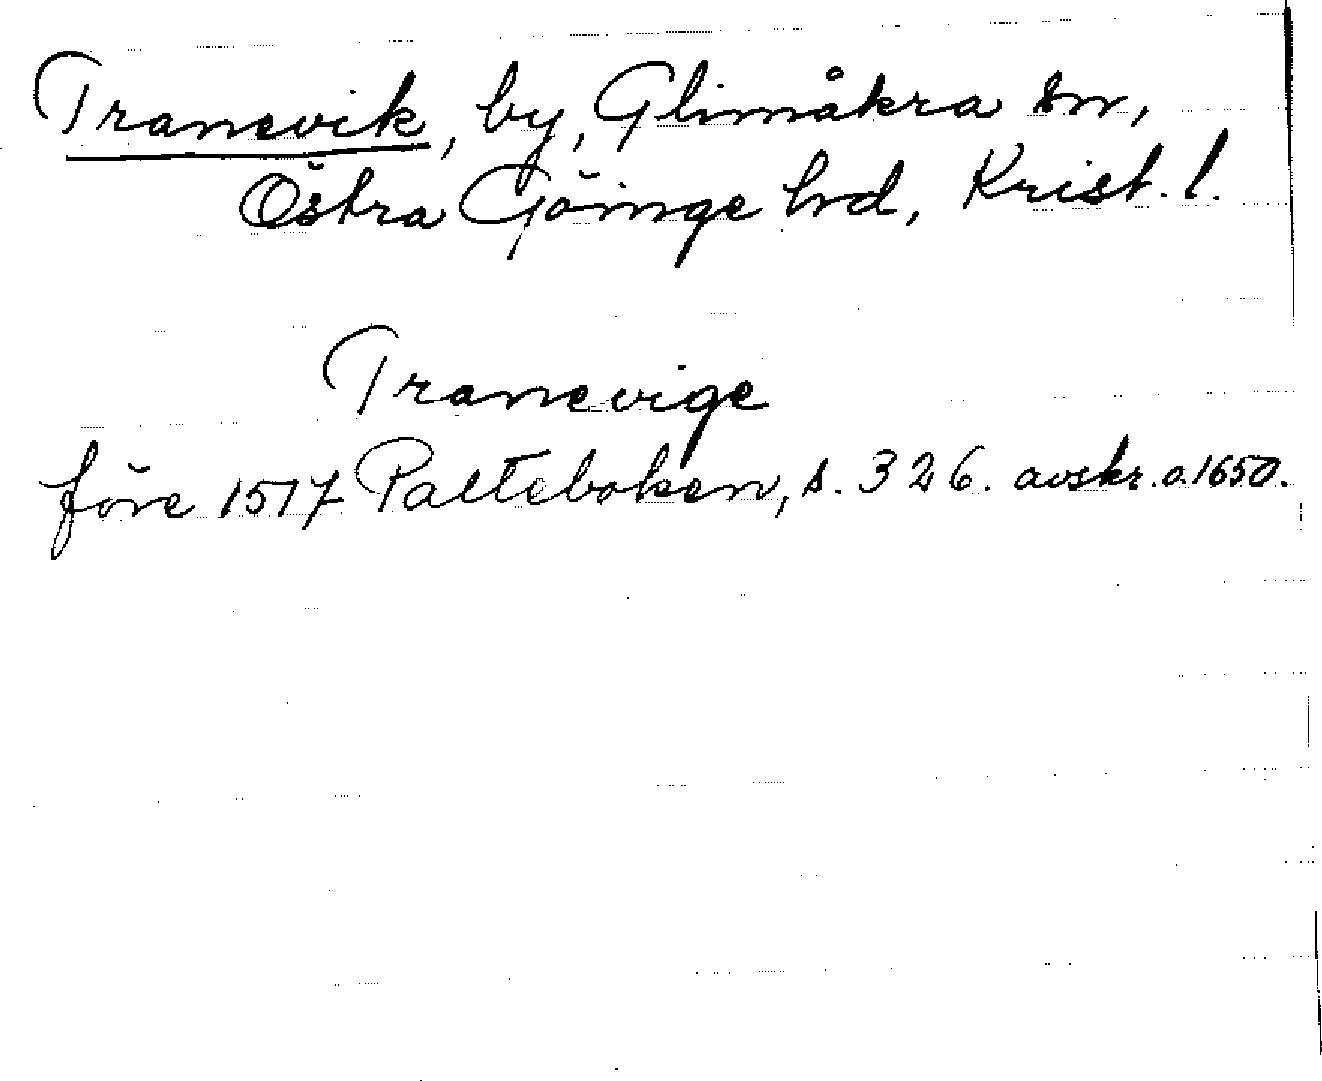 Tranevik, by, Glimåkra sn,
Östra Göinge hd, Krist. l.
Tranevige
före 1517 Palteboken, s. 326. avskr. o. 1650.